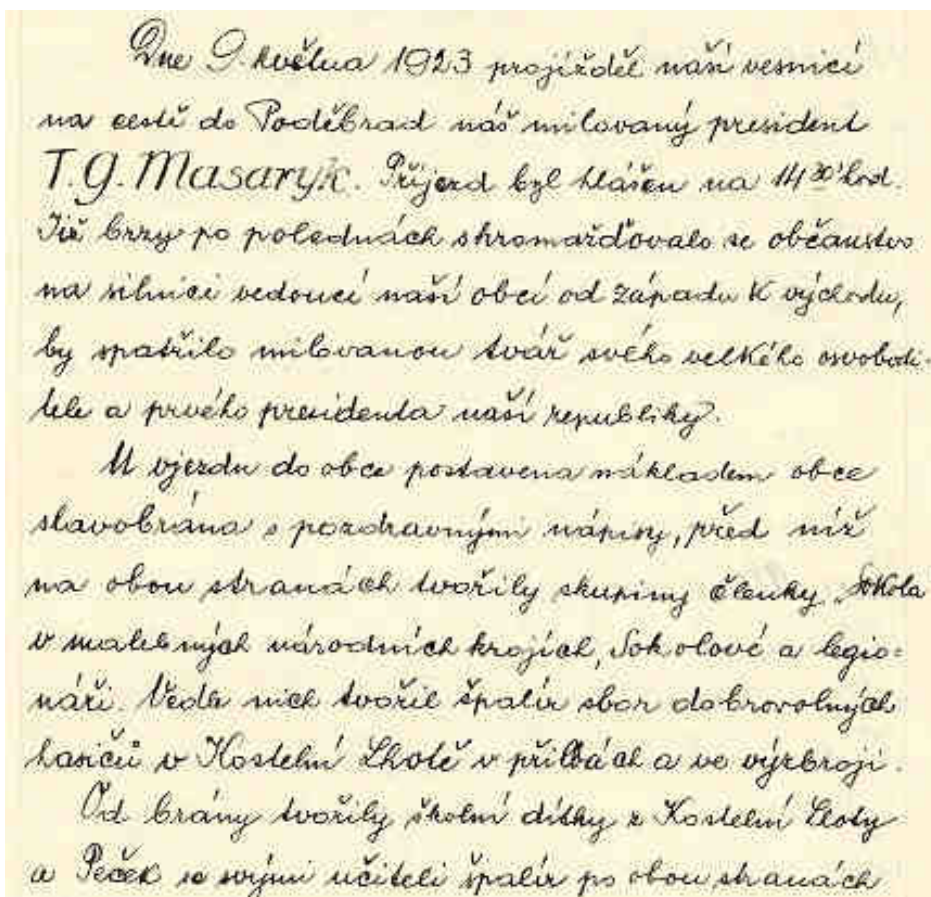 Dne 9. května 1923 projížděl naší vesnicí
na cestě do Poděbrad náš milovaný president
T. G. Masaryk. Příjezd byl hlášen na 14 30 hod.
Již brzy po polednách shromažďovalo se občanstvo
na silnici vedoucí naší obcí od západu k východu,
by spatřilo milovanou tvář svého velkého osvobodi-
tele a prvého presidenta naší republiky.
U vjezdu do obce postavena nákladem obce
slavobrána s pozdravnými nápisy, před níž
na obou stranách tvořily skupiny členky Sokola
v malebných národních krojích, Sokolové a legio=
náři. Vedle nich tvořil špalír sbor dobrovolných
hasičů v Kostelní Lhotě v přilbách a ve výzbroji.
Od brány tvořily školní dítky z Kostelní Lhoty
a Peček se svými učiteli špalír po obou stranách